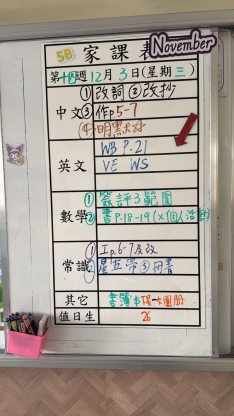 5B 家課表
November
第十四週 12月3日(星期三)
中文
①改詞 ②改抄
③作p.5-7
④明默大分
英文
WB P.21
VE WS
數學
①簽評3範圍
②書P.18-19(X個人活動)
常識
①工p.6-7及改
②星五帶③冊書
其它
書簿
值日生
26